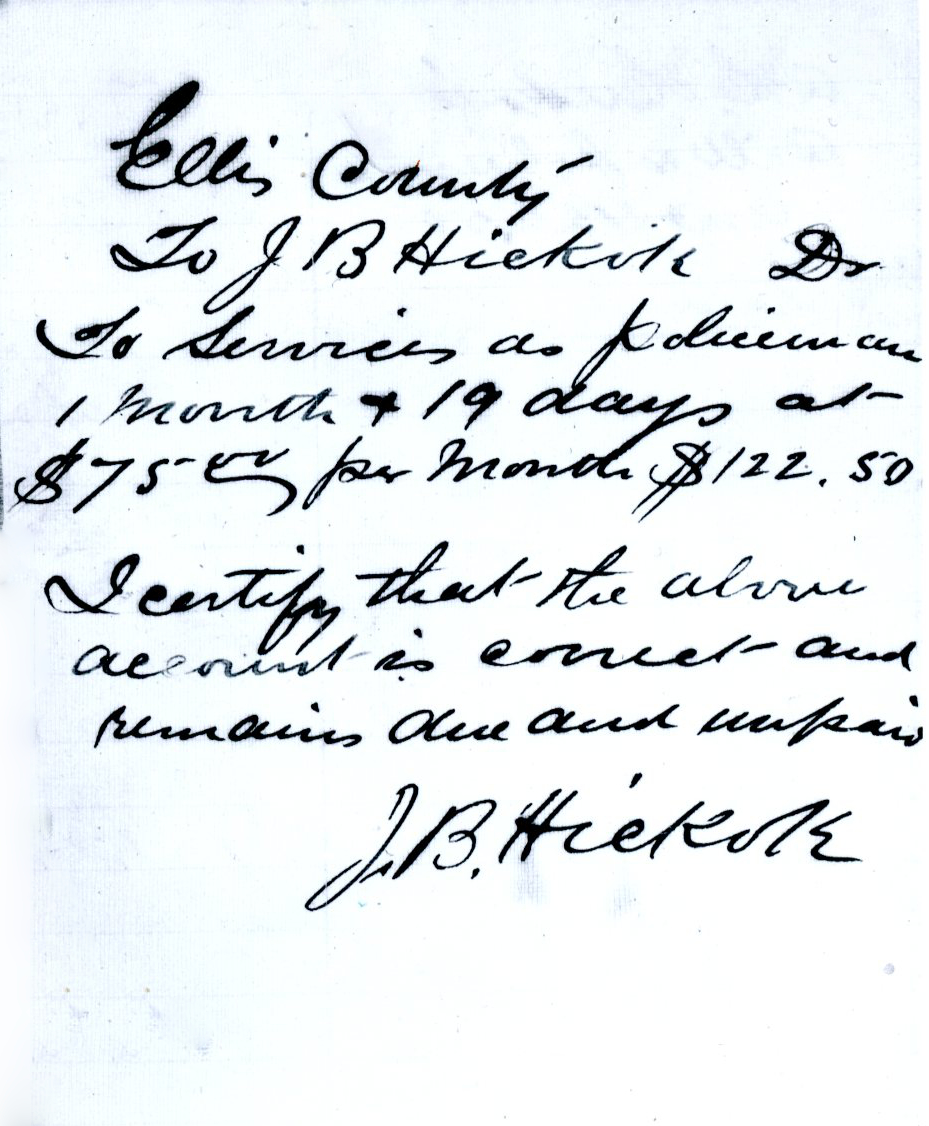 Ellis County
To J B Hickok Dr
To Services as policeman
1 Month & 19 days at
$75 00 per Month $122.50
I certify that the above
account is correct and
remains due and unpaid
J. B. Hickok